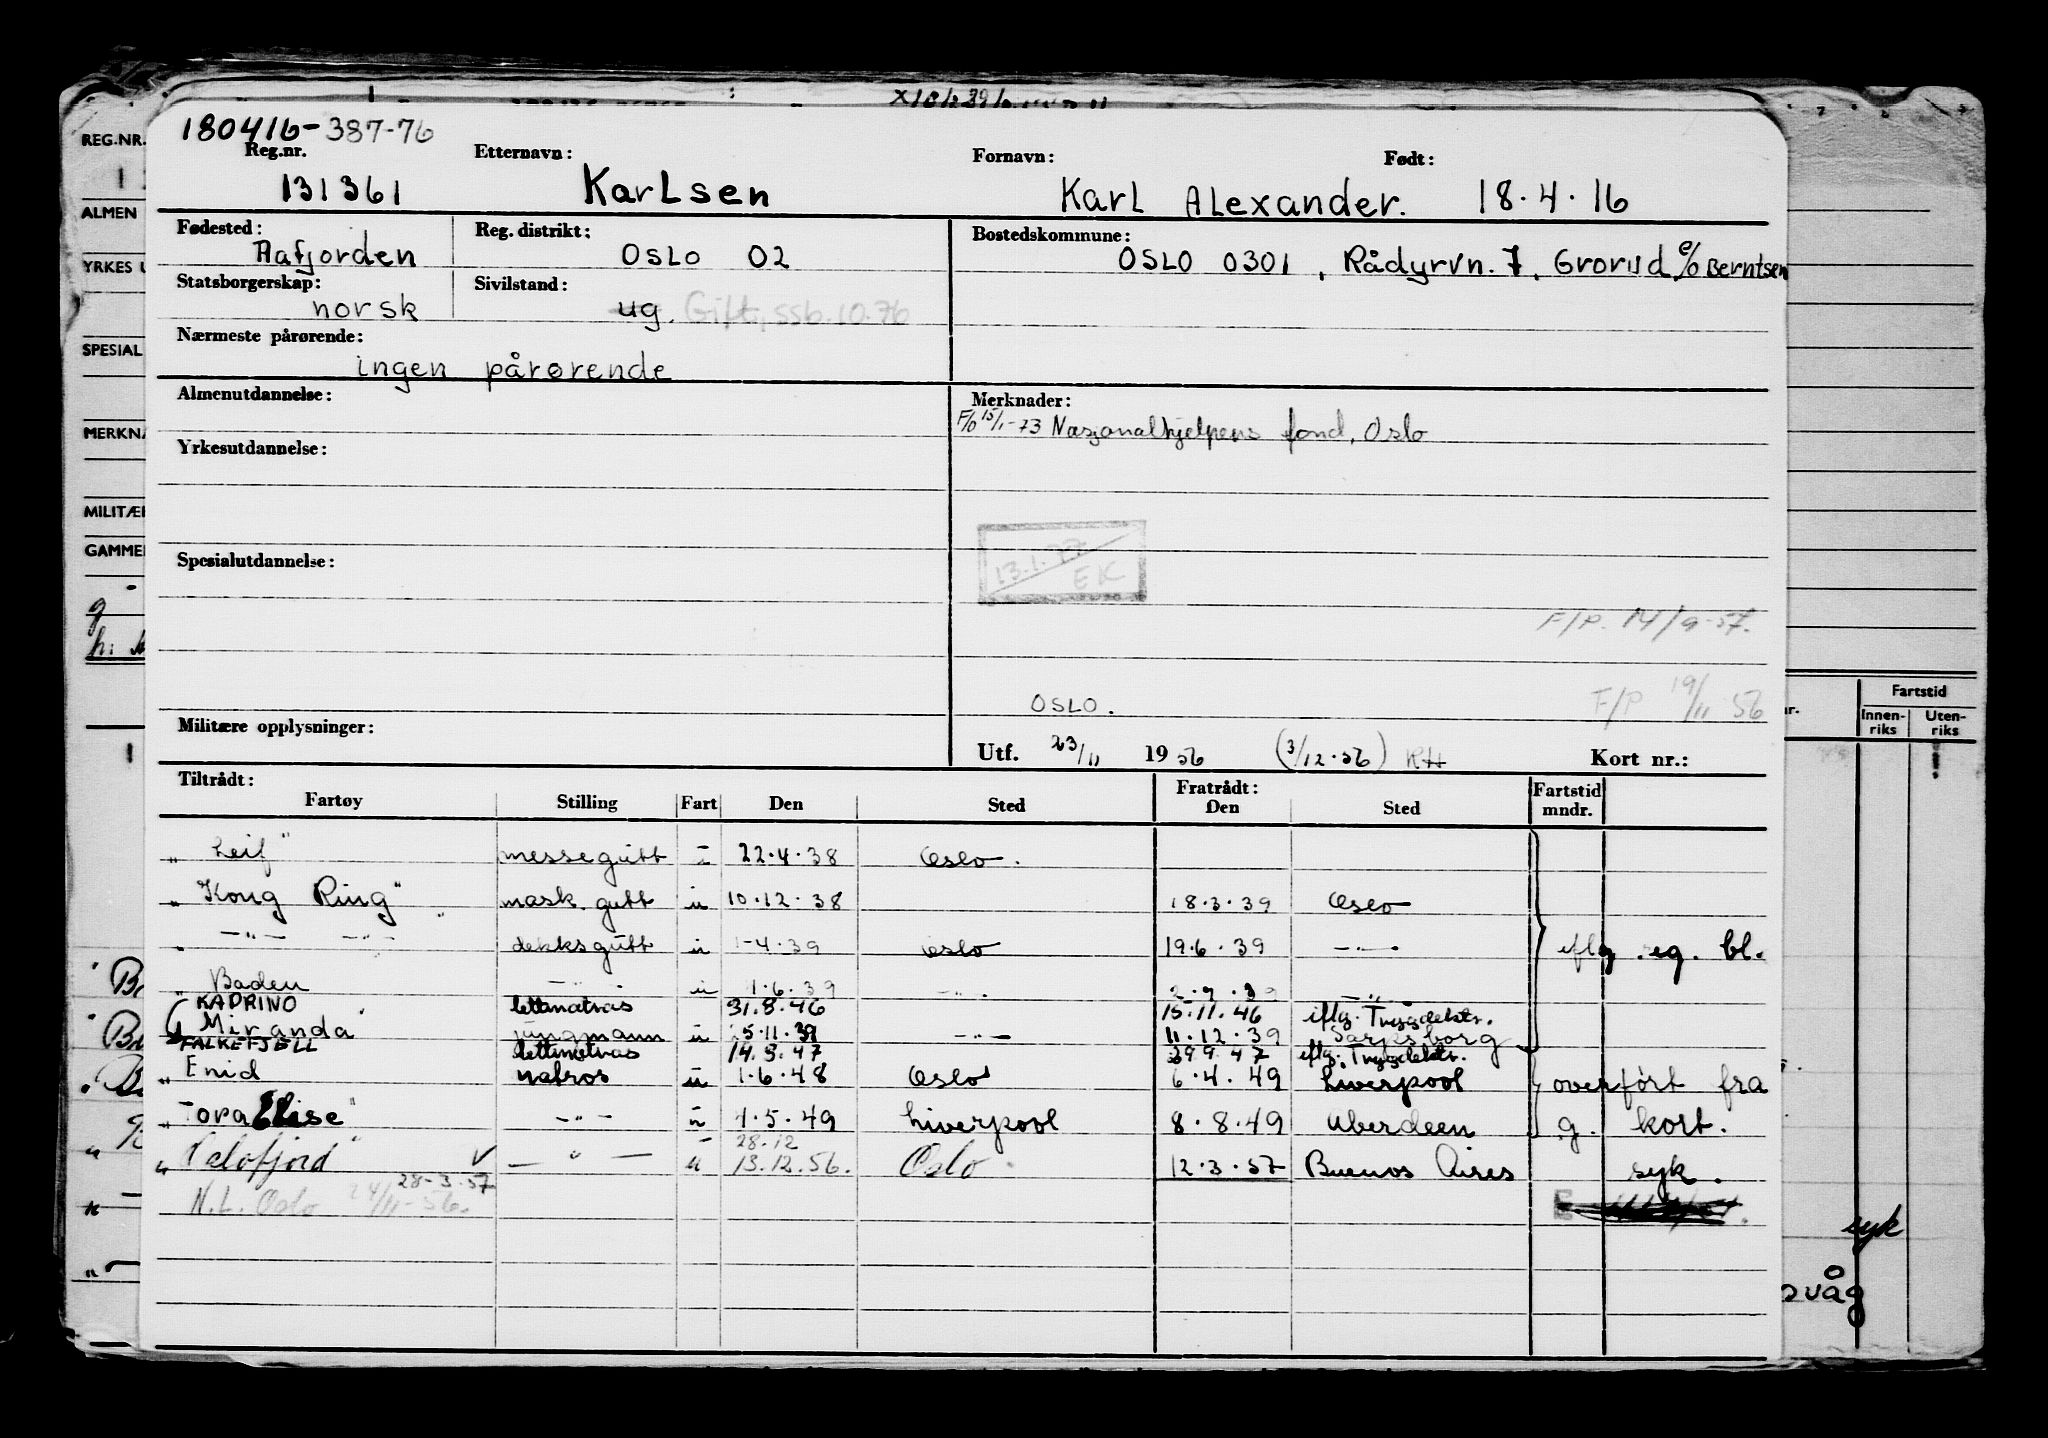 180416-387-76
Reg.nr. Etternavn: Fornavn: Født:
131361 Karlsen Karl Alexander. 18.4.16
Fødested: Reg. distrikt: Bostedskommune:
Aafjorden OSLO 02 OSLO 0301, Rådyrvn. 7, Grorud c/o Berntsen
Statsborgerskap: Sivilstand:
norsk ug. Gift, ssb. 10.76
Nærmeste pårørende:
ingen pårørende
Almenutdannelse: Merknader:
F/O 15/1-73 Nasjonalhjelpens fond, Oslo
Yrkesutdannelse:
Spesialutdannelse:
13.1.77
EK
F/P. 14/9-57.
OSLO. F/P 19/11 56
Militære opplysninger:
Utf. 23/11 1956 (3/12.56) KH Kort nr.:
Tiltrådt: Fratrådt: Fartstid
Fartøy Stilling Fart Den Sted Den Sted mndr.
"Leif" messegutt 22.4.38 Oslo.
"Kong Ring" mask. gutt u 10.12.38 18.3.39 Oslo
" —"— —"— dekksgutt u 1-4.39 Oslo 19.6.39 —"— iflg. reg. bl.
" Baden —"— u 1.6.39 —"—. 2.9.39 —"—
KADRINO lettmatros 31.8.46 15.11.46 iflg. Trygdektr.
"Miranda" jungmann u 15.11.39 —"— 11.12.39 Sarpsborg
FALKEFJELL lettmatros 14.8.47 29.9.47 iflg. Trygdektr.
" Enid matros u 1.6.48 Oslo 6.4.49 Liverpool overført fra
"Tora Elise" —"— u 4.5.49 Liverpool 8.8.49 Aberdeen g. kort.
28.12
" Oslofjord" √ —"— u 13.12.56. Oslo. 12.3.57 Buenos Aires syk.
28-3.57
N.L. Oslo 24/11-56.
REG.NR.
ALMEN
YRKES U
SPESIAL
MERKNA
MILITÆR
GAMMEL
Fartstid
Innen-riks Uten-riks
syk